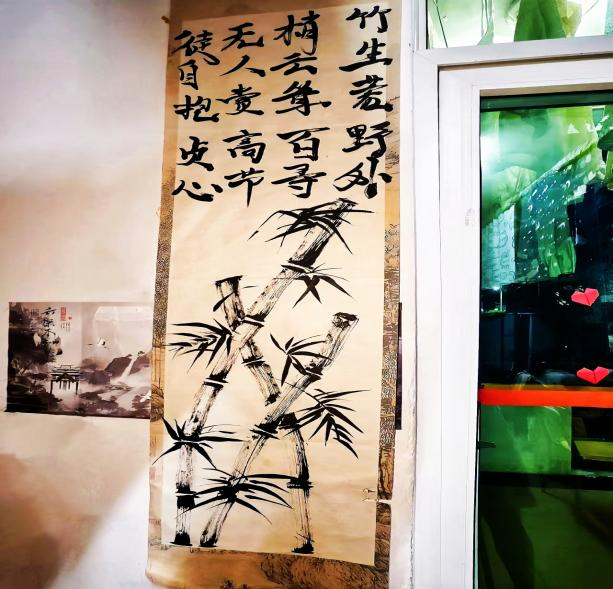 竹生荒野外
梢云耸百寻
无人赏高节
徒自抱贞心